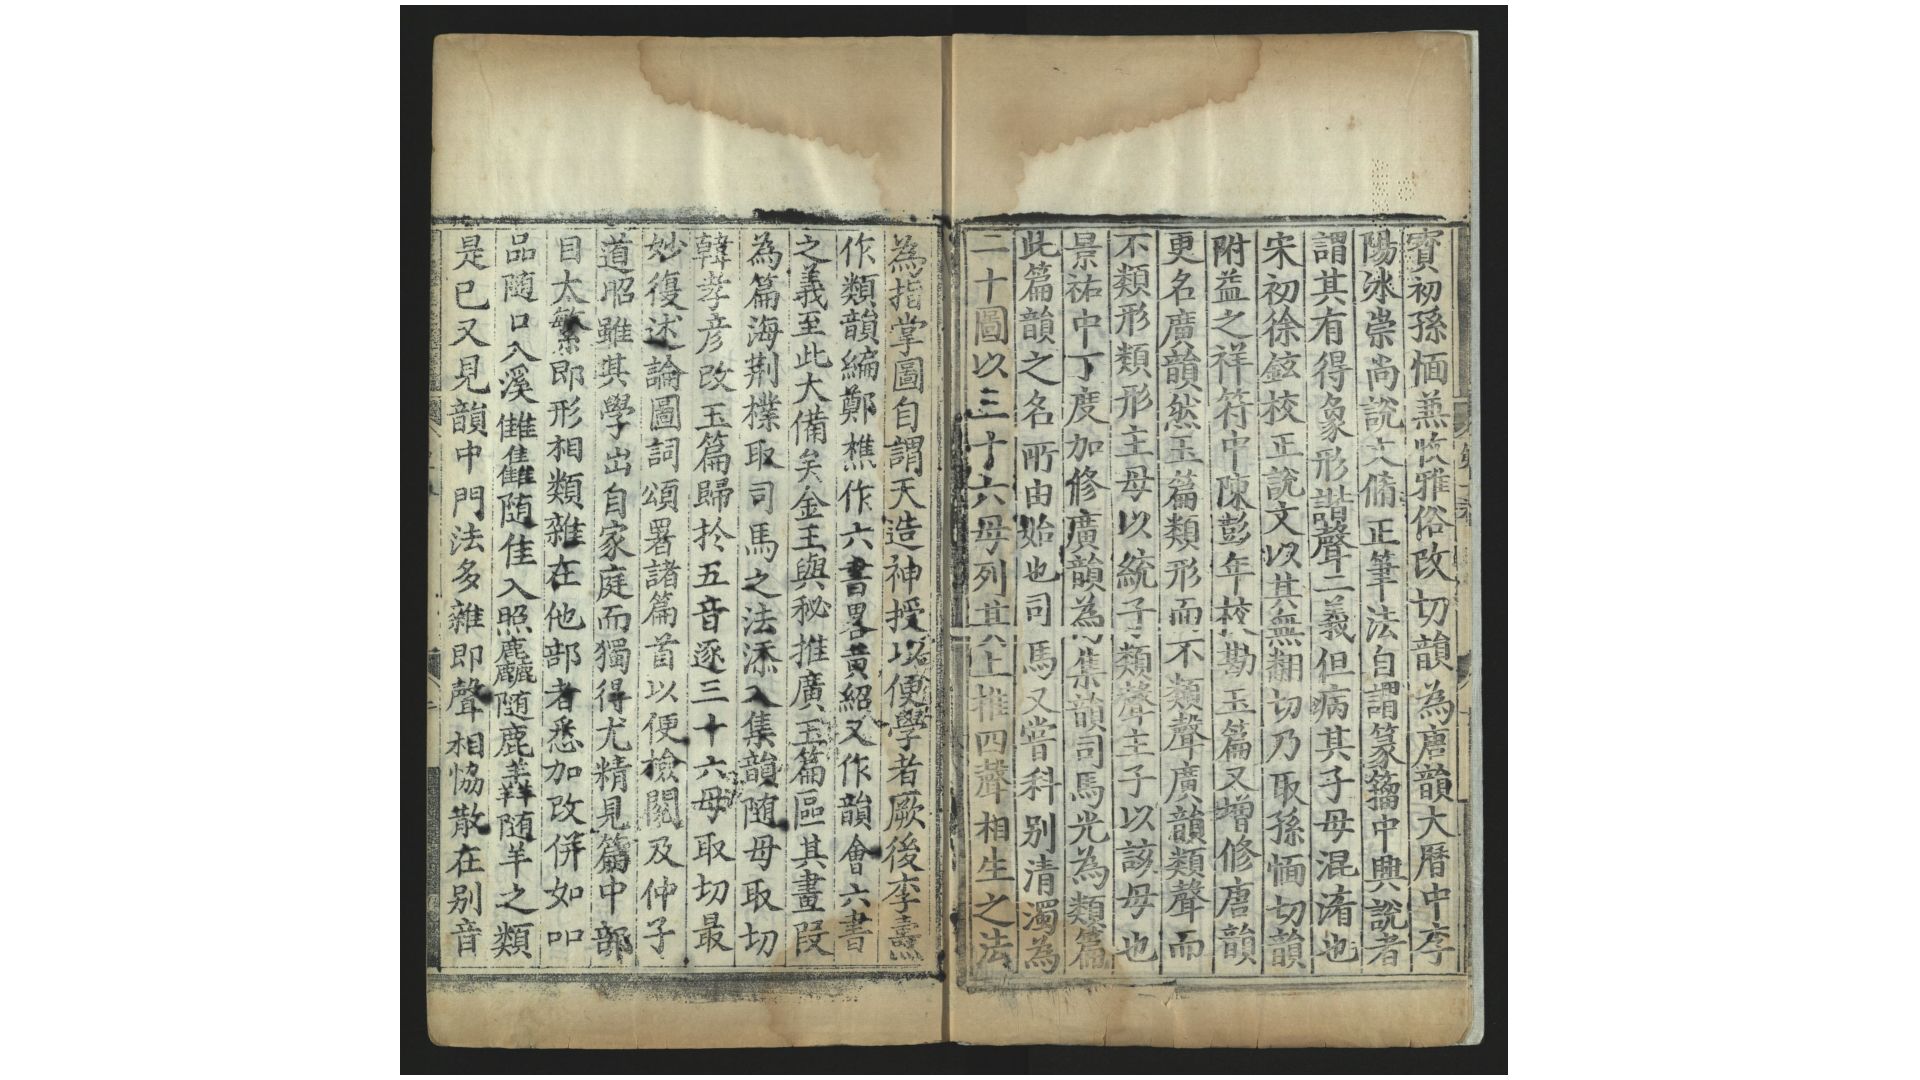 寳初孫愐兼收雅俗改切韻為唐韻大曆中李
陽冰崇尚說文脩正筆法自謂篆籀中興說者
謂其有得象形諧聲二義但病其子母混淆也
宋初徐鉉校正說文以其無翻切乃取孫愐切韻
附益之祥符中陳彭年校勘玉篇又增修唐韻
更名廣韻然玉篇類形而不類聲廣韻類聲而
不類形類形主母以統子類聲主子以該母也
景祐中丁度加修廣韻為集韻司馬光為類篇
此篇韻之名所由始也司馬又嘗科别清濁為
二十圖以三十六母列其上推四聲相生之法
為指掌圖自謂天造神授以便學者厥後李燾
作類韻編鄭樵作六書畧黄紹又作韻會六書
之義至此大備矣金王與秘推廣玉篇區其畫段
為篇海荆樸取司馬之法添入集韻随母取切
韓孝彦改玉篇歸於五音逐三十六母取切最
妙復述論圖詞頌署諸篇首以便檢閱及仲子
道昭雖其學出自家庭而獨得尤精見篇中部
目太繁即形相類雜在他部者悉加改併如吅
品随口入溪雔雥随隹入照麤随鹿羴随羊之類
是已又見韻中門法多雜即聲相恊散在别音